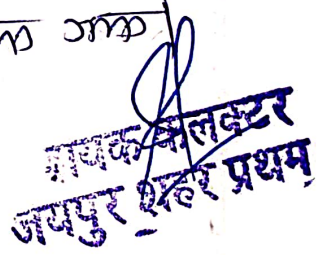 सहायक कलक्टर
जयपुर शहर प्रथम